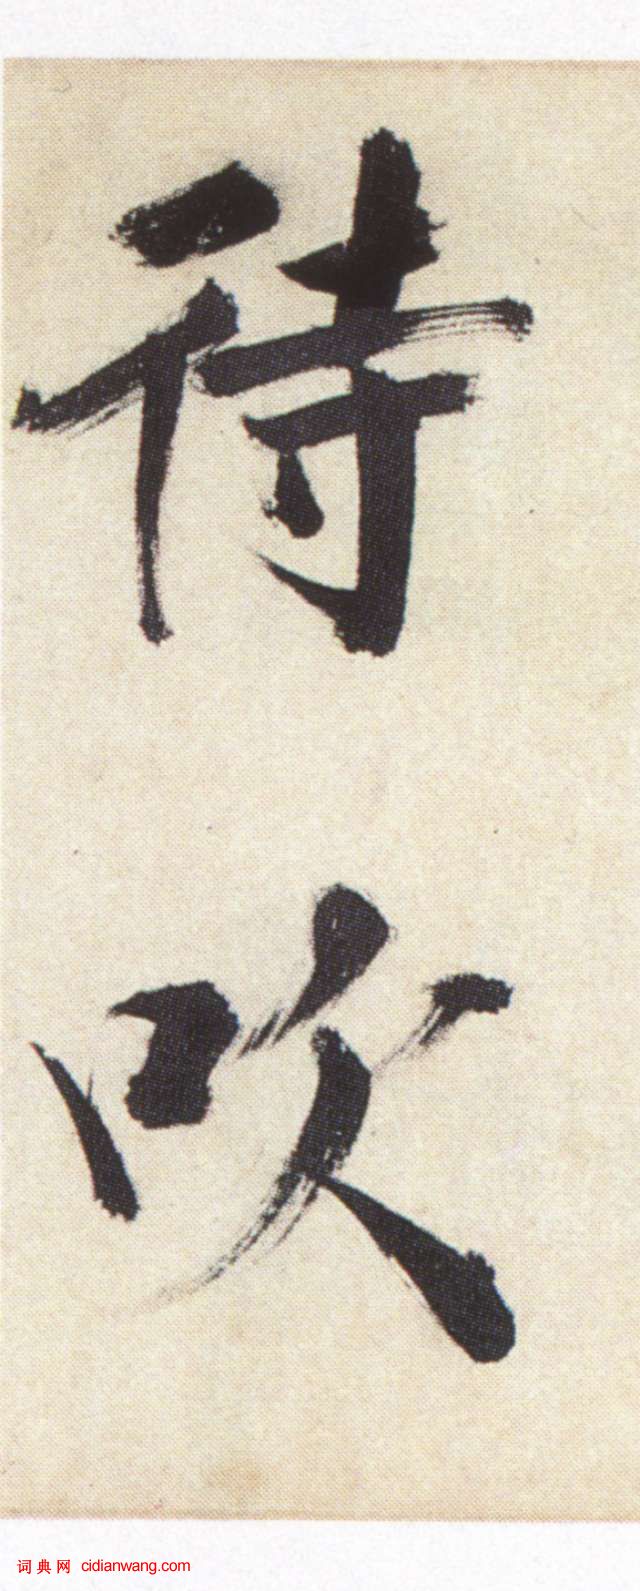 待
吹
词典网 cidianwang.com